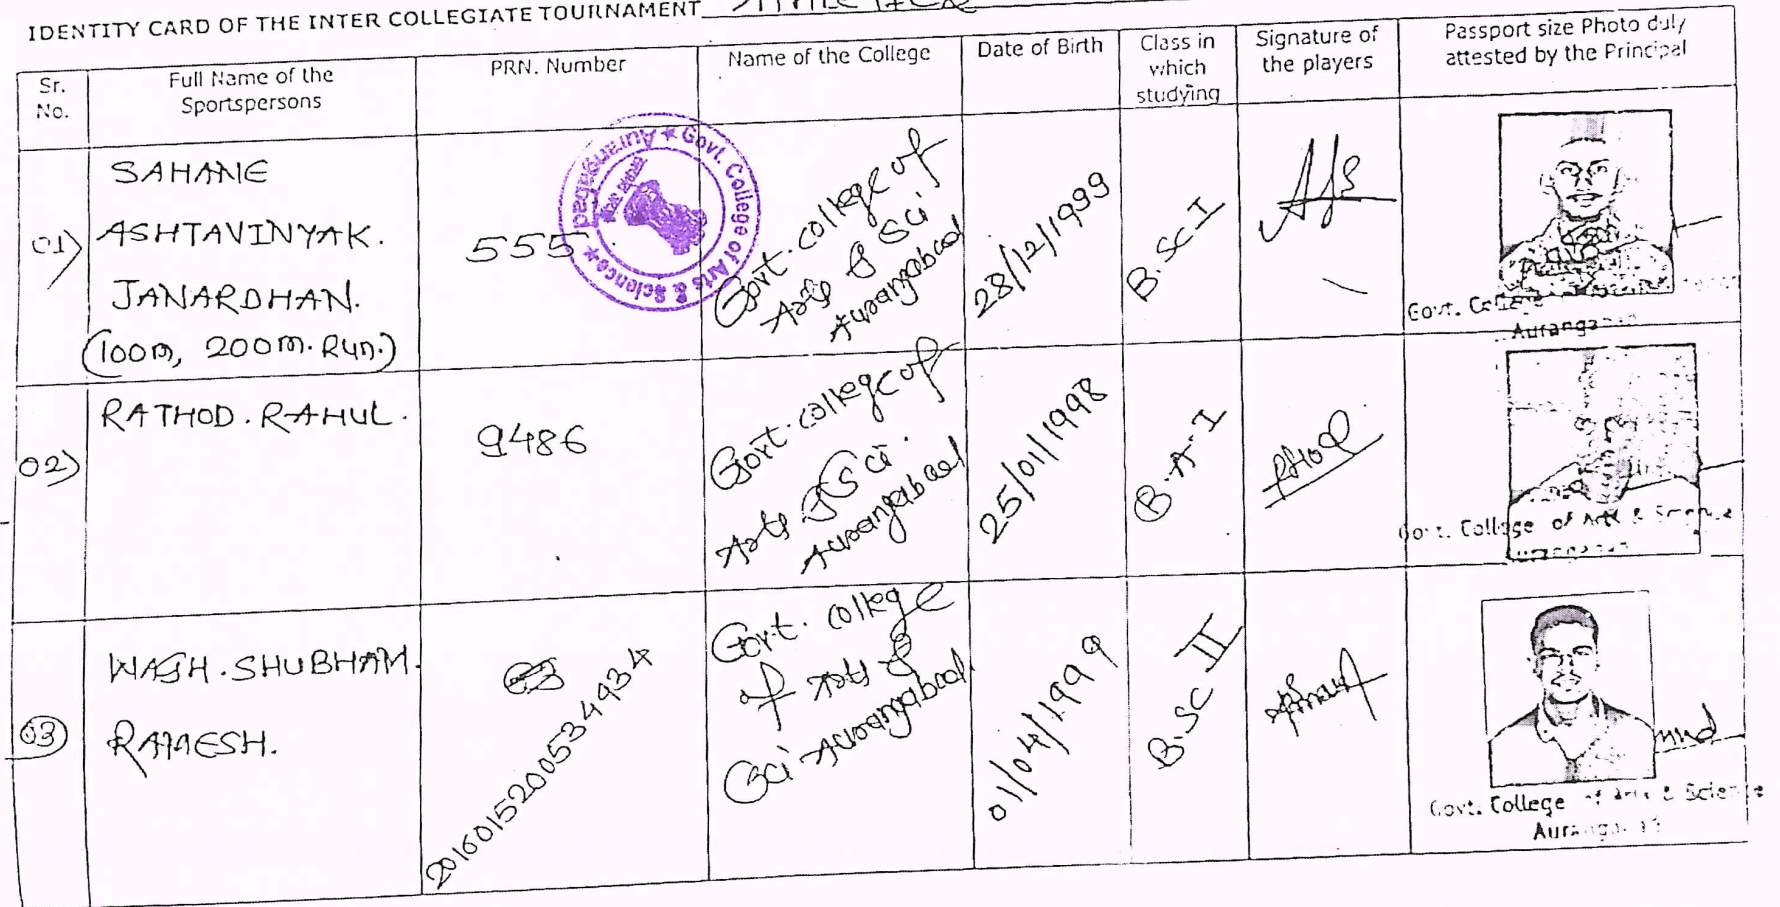 IDENTITY CARD OF THE INTER COLLEGIATE TOURNAMENT
Sr. No.
Full Name of the Sportspersons
PRN. Number
Name of the College
Date of Birth
Class in which studying
Signature of the players
Passport size Photo duly attested by the Principal
01)
SAHANE
ASHTAVINYAK.
JANARDHAN.
(100m, 200m. Run.)
555
Govt. College of Arts & Science ★ Aurangabad ★
Govt. college of
Arts & Sci
Aurangabad
28/12/1999
B.SC I
Govt. College
Auranga
02)
RATHOD. RAHUL.
9486
Govt. college of
Arts & Sci.
Aurangabad
25/01/1998
B.A-I
Govt. College of Arts & Science
03)
WAGH. SHUBHAM.
RAMESH.
2016015200534934
Govt. college
of Arts &
Sci Aurangabad
01/04/1999
B.SC II
Govt. College of Arts & Science